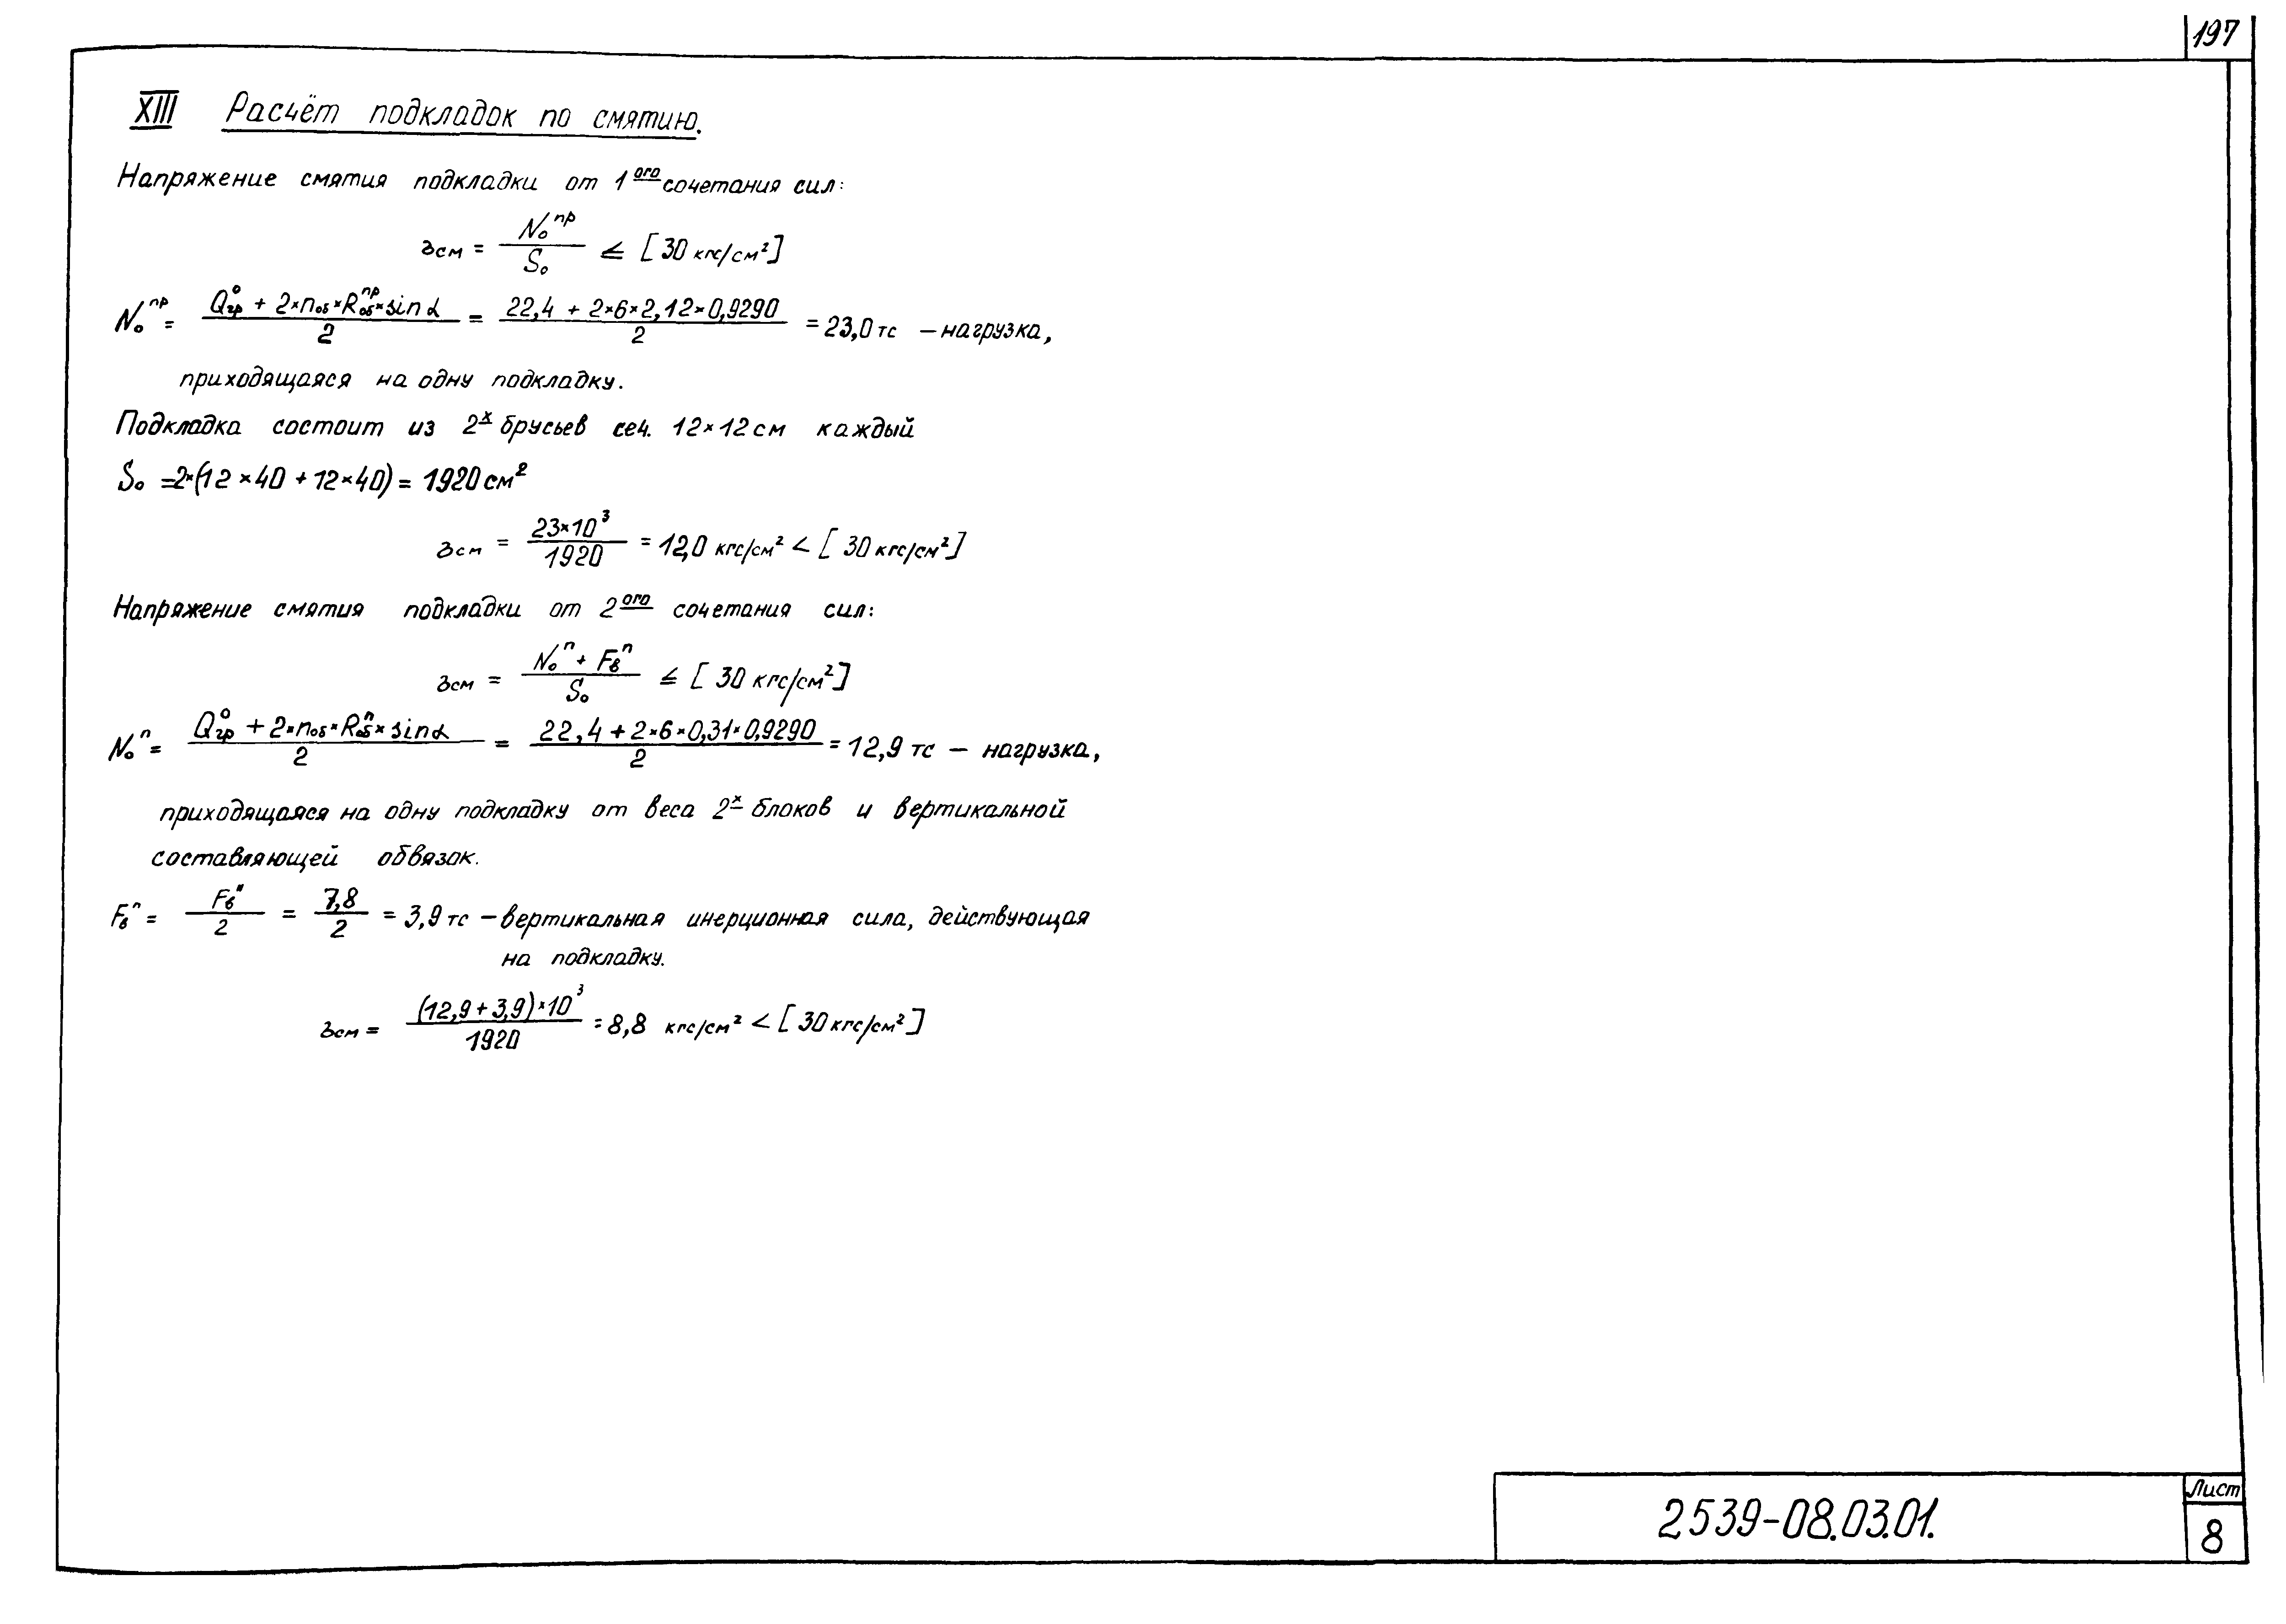 197
XIII Расчёт подкладок по смятию.
Напряжение смятия подкладки от 1ого сочетания сил:
σсм = N₀ᵖᵖ / S₀ ≤ [30 кгс/см²]
N₀ᵖᵖ = (Q⁰гр + 2×nоб×Rобᵖᵖ×sinα) / 2 = (22,4 + 2×6×2,12×0,9290) / 2 = 23,0 тс – нагрузка,
приходящаяся на одну подкладку.
Подкладка состоит из 2х брусьев сеч. 12×12 см каждый
S₀ = 2×(12×40 + 12×40) = 1920 см²
σсм = 23×10³ / 1920 = 12,0 кгс/см² < [30 кгс/см²]
Напряжение смятия подкладки от 2ого сочетания сил:
σсм = (N₀ⁿ + Fвⁿ) / S₀ ≤ [30 кгс/см²]
N₀ⁿ = (Q⁰гр + 2×nоб×Rобⁿ×sinα) / 2 = (22,4 + 2×6×0,31×0,9290) / 2 = 12,9 тс – нагрузка,
приходящаяся на одну подкладку от веса 2х блоков и вертикальной
составляющей обвязок.
Fвⁿ = Fв" / 2 = 7,8 / 2 = 3,9 тс – вертикальная инерционная сила, действующая
на подкладку.
σсм = (12,9 + 3,9)×10³ / 1920 = 8,8 кгс/см² < [30 кгс/см²]
2539-08.03.01.
Лист
8